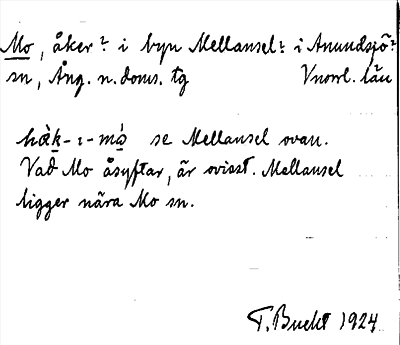 Mo, åker? i byn Mellansel? i Anundsjö?
sn, Ång. n. doms. tg Vnorrl. län
se Mellansel ovan.
Vad Mo åsyftar, är ovisst. Mellansel
ligger nära Mo sn.
T. Bucht 1924